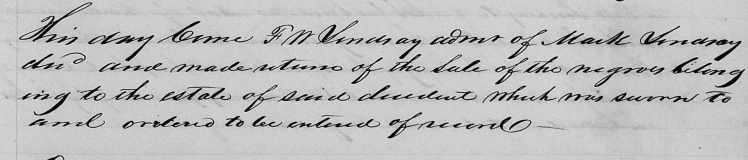 This day Came F W Lindsay admr of Mark Lindsay
decd and made return of the Sale of the negroes belong
ing to the estate of said decedent which was sworn to
and ordered to be entered of record